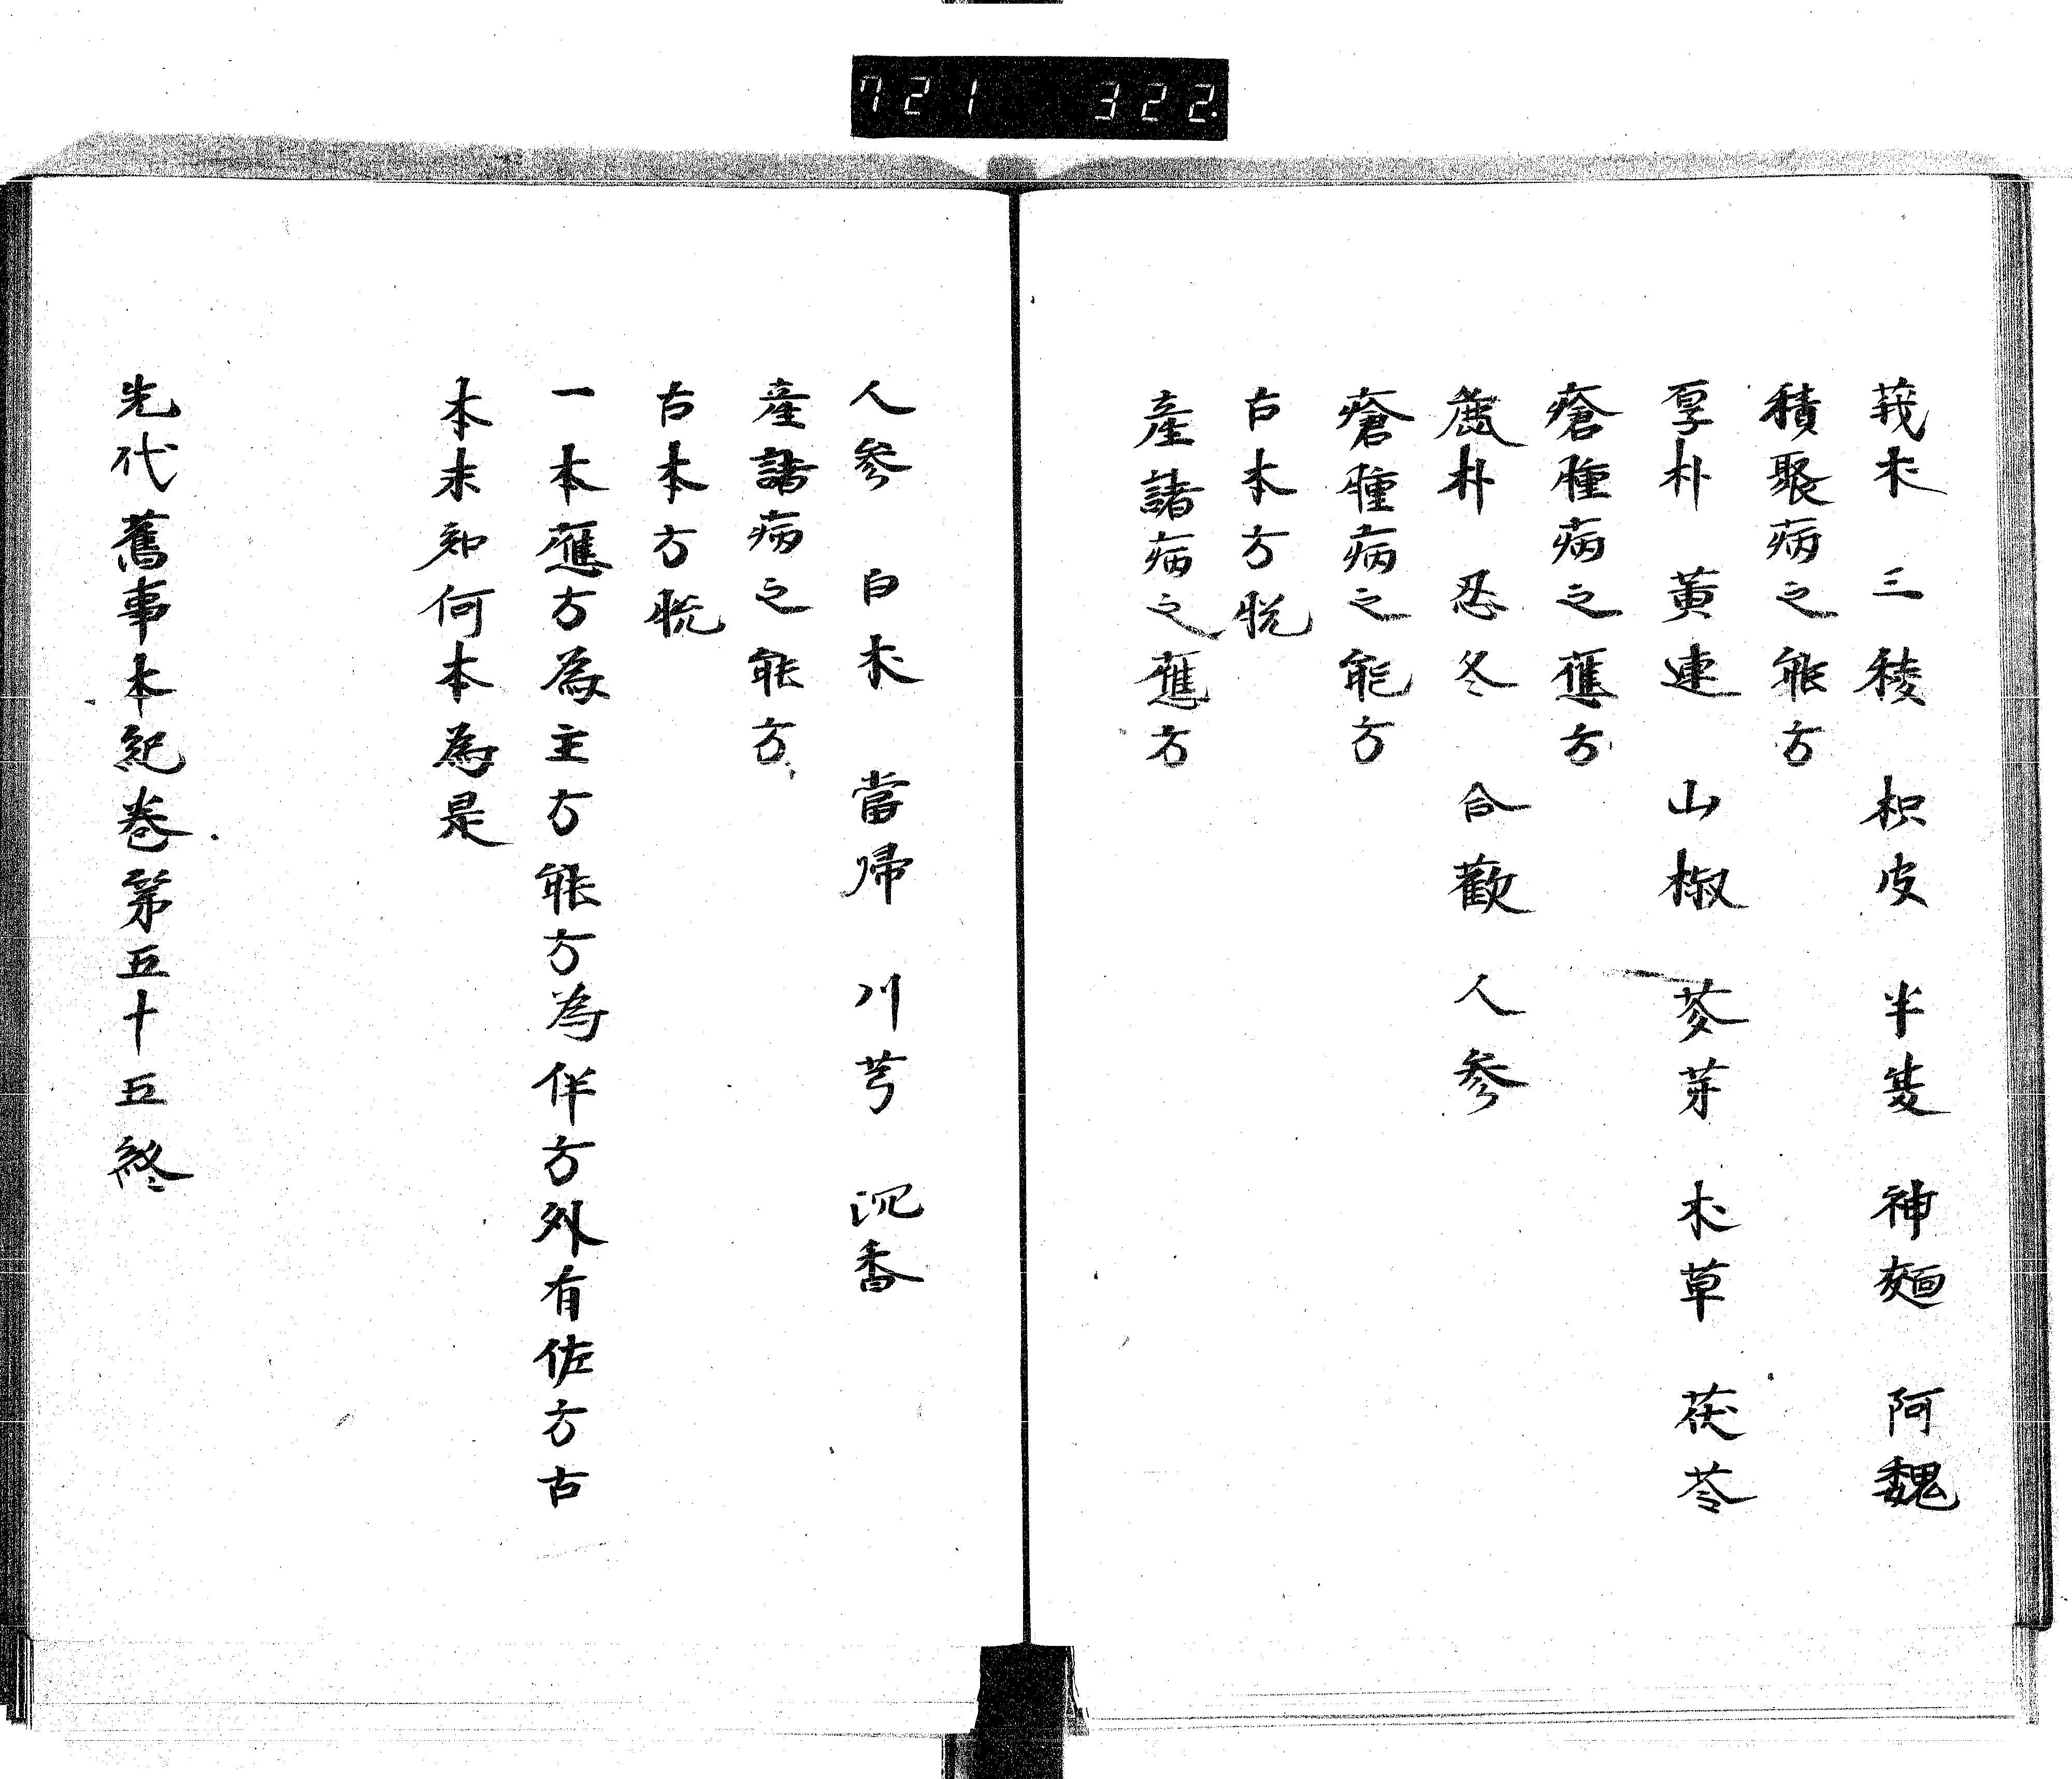 721 322.
莪朮 三稜 枳皮 半夏 神麹 阿魏
積聚病之能方
厚朴 黄連 山椒 麥芽 朮草 茯苓
瘡腫病之應方
朴 忍冬 合歡 人參
瘡腫病之能方
古本方脱
産諸病之應方
人參 白朮 當帰 川芎 沉香
産諸病之能方
古本方脱
一本應方為主方能方為伴方外有佐方古
本未知何本為是
先代舊事本紀巻第五十五終